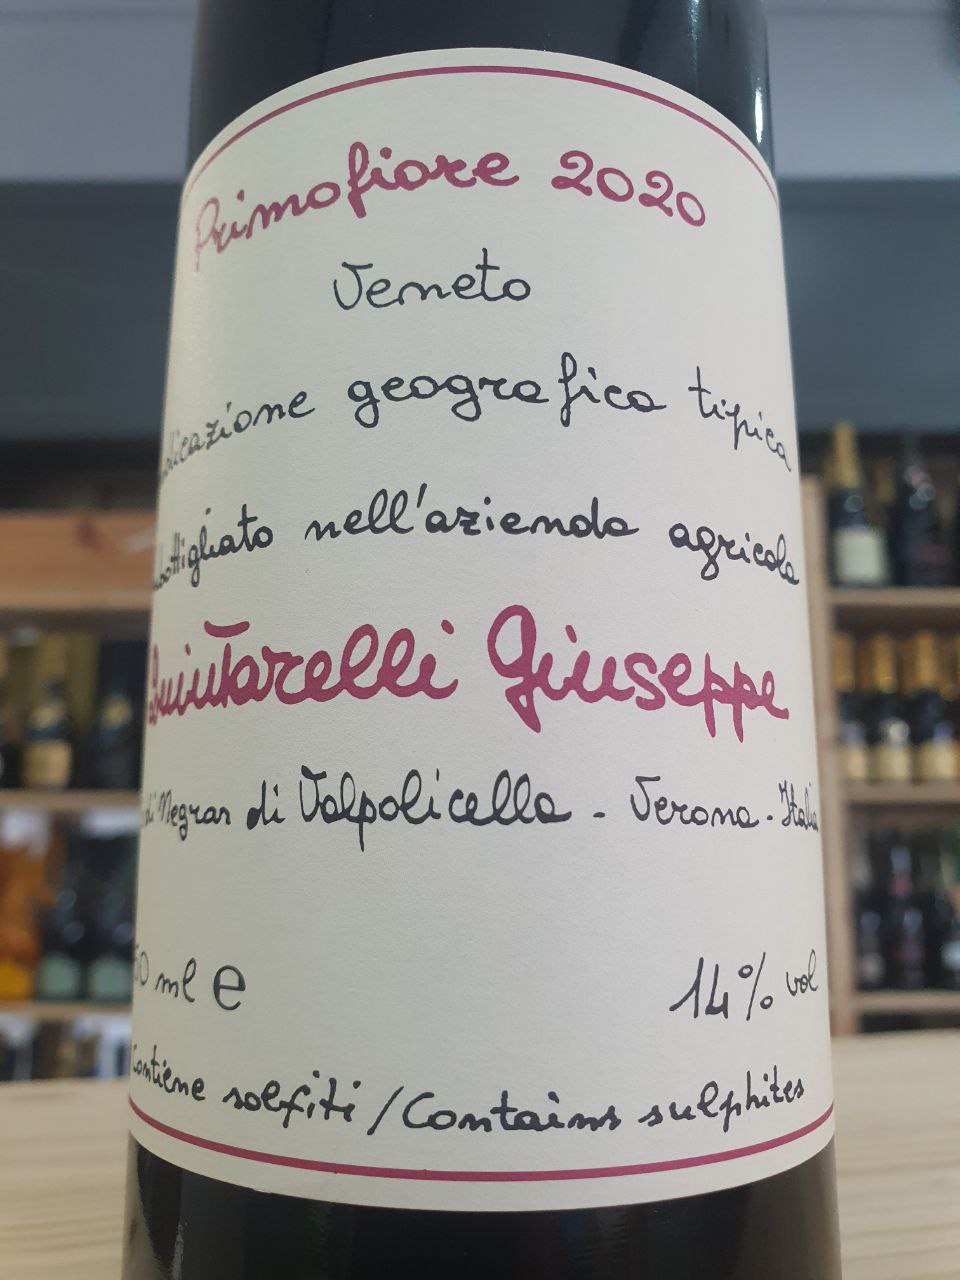 Primofiore 2020
Veneto
geografica tipica
nell'azienda agricola
Quintarelli Giuseppe
di Negrar di Valpolicella - Verona - Italia
ml e
14% vol
Contiene solfiti / Contains sulphites